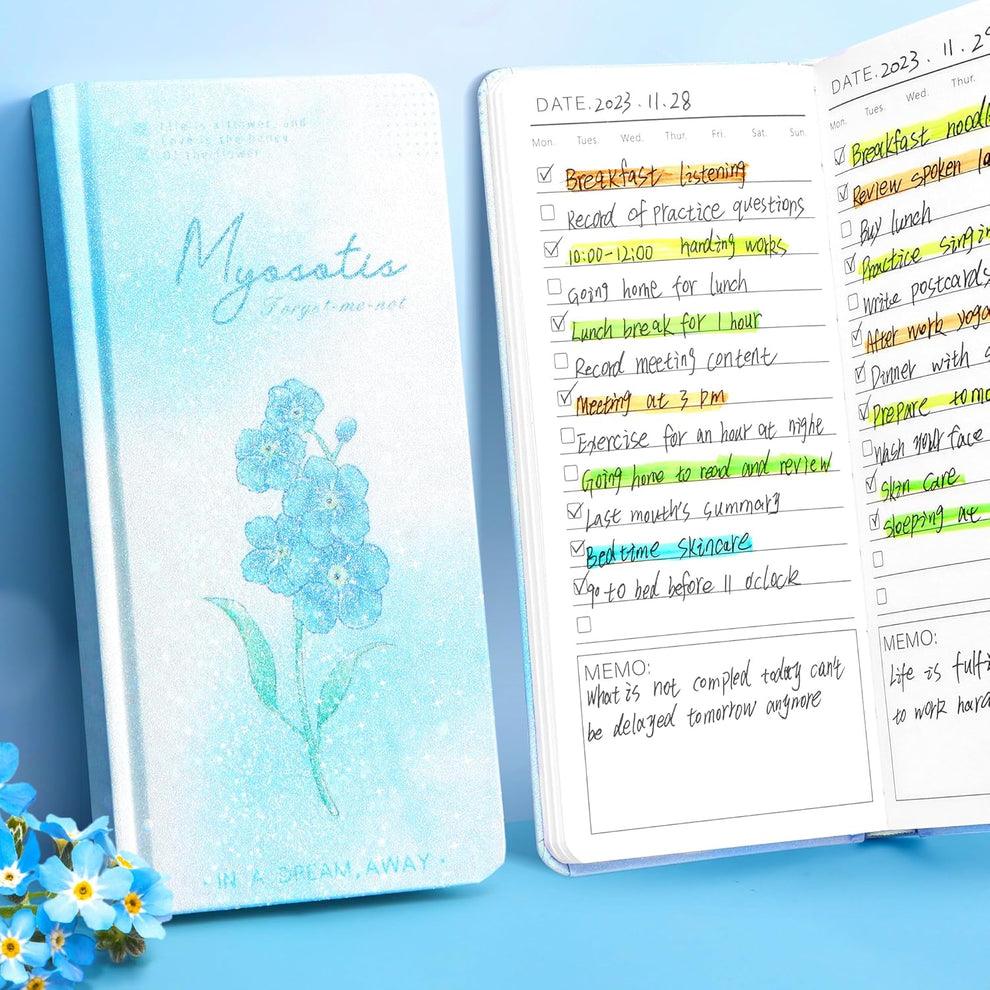 Life is a flower, and
love is the honey
of the flower
Myosotis
Forget-me-not
· IN A DREAM, AWAY ·
DATE. 2023 . 11 . 28
Mon. Tues. Wed. Thur. Fri. Sat. Sun.
Breakfast listening
Record of Practice questions
10:00-12:00 handing works
Going home for lunch
Lunch break for 1 hour
Record meeting content
Meeting at 3 pm
Exercise for an hour at night
Going home to read and review
Last mouth's summary
Bedtime skincare
go to bed before 11 oclock
MEMO:
What is not compled today can't
be delayed tomorrow anymore
DATE. 2023 . 11 . 29
Mon. Tues. Wed. Thur.
Breakfast noodl
Review spoken
Buy lunch
Practice singin
Write postcards
After work yoga
Dinner with
Prepare tomo
Wash your face
Skin Care
Sleeping at
MEMO:
Life is fulfi
to work hard